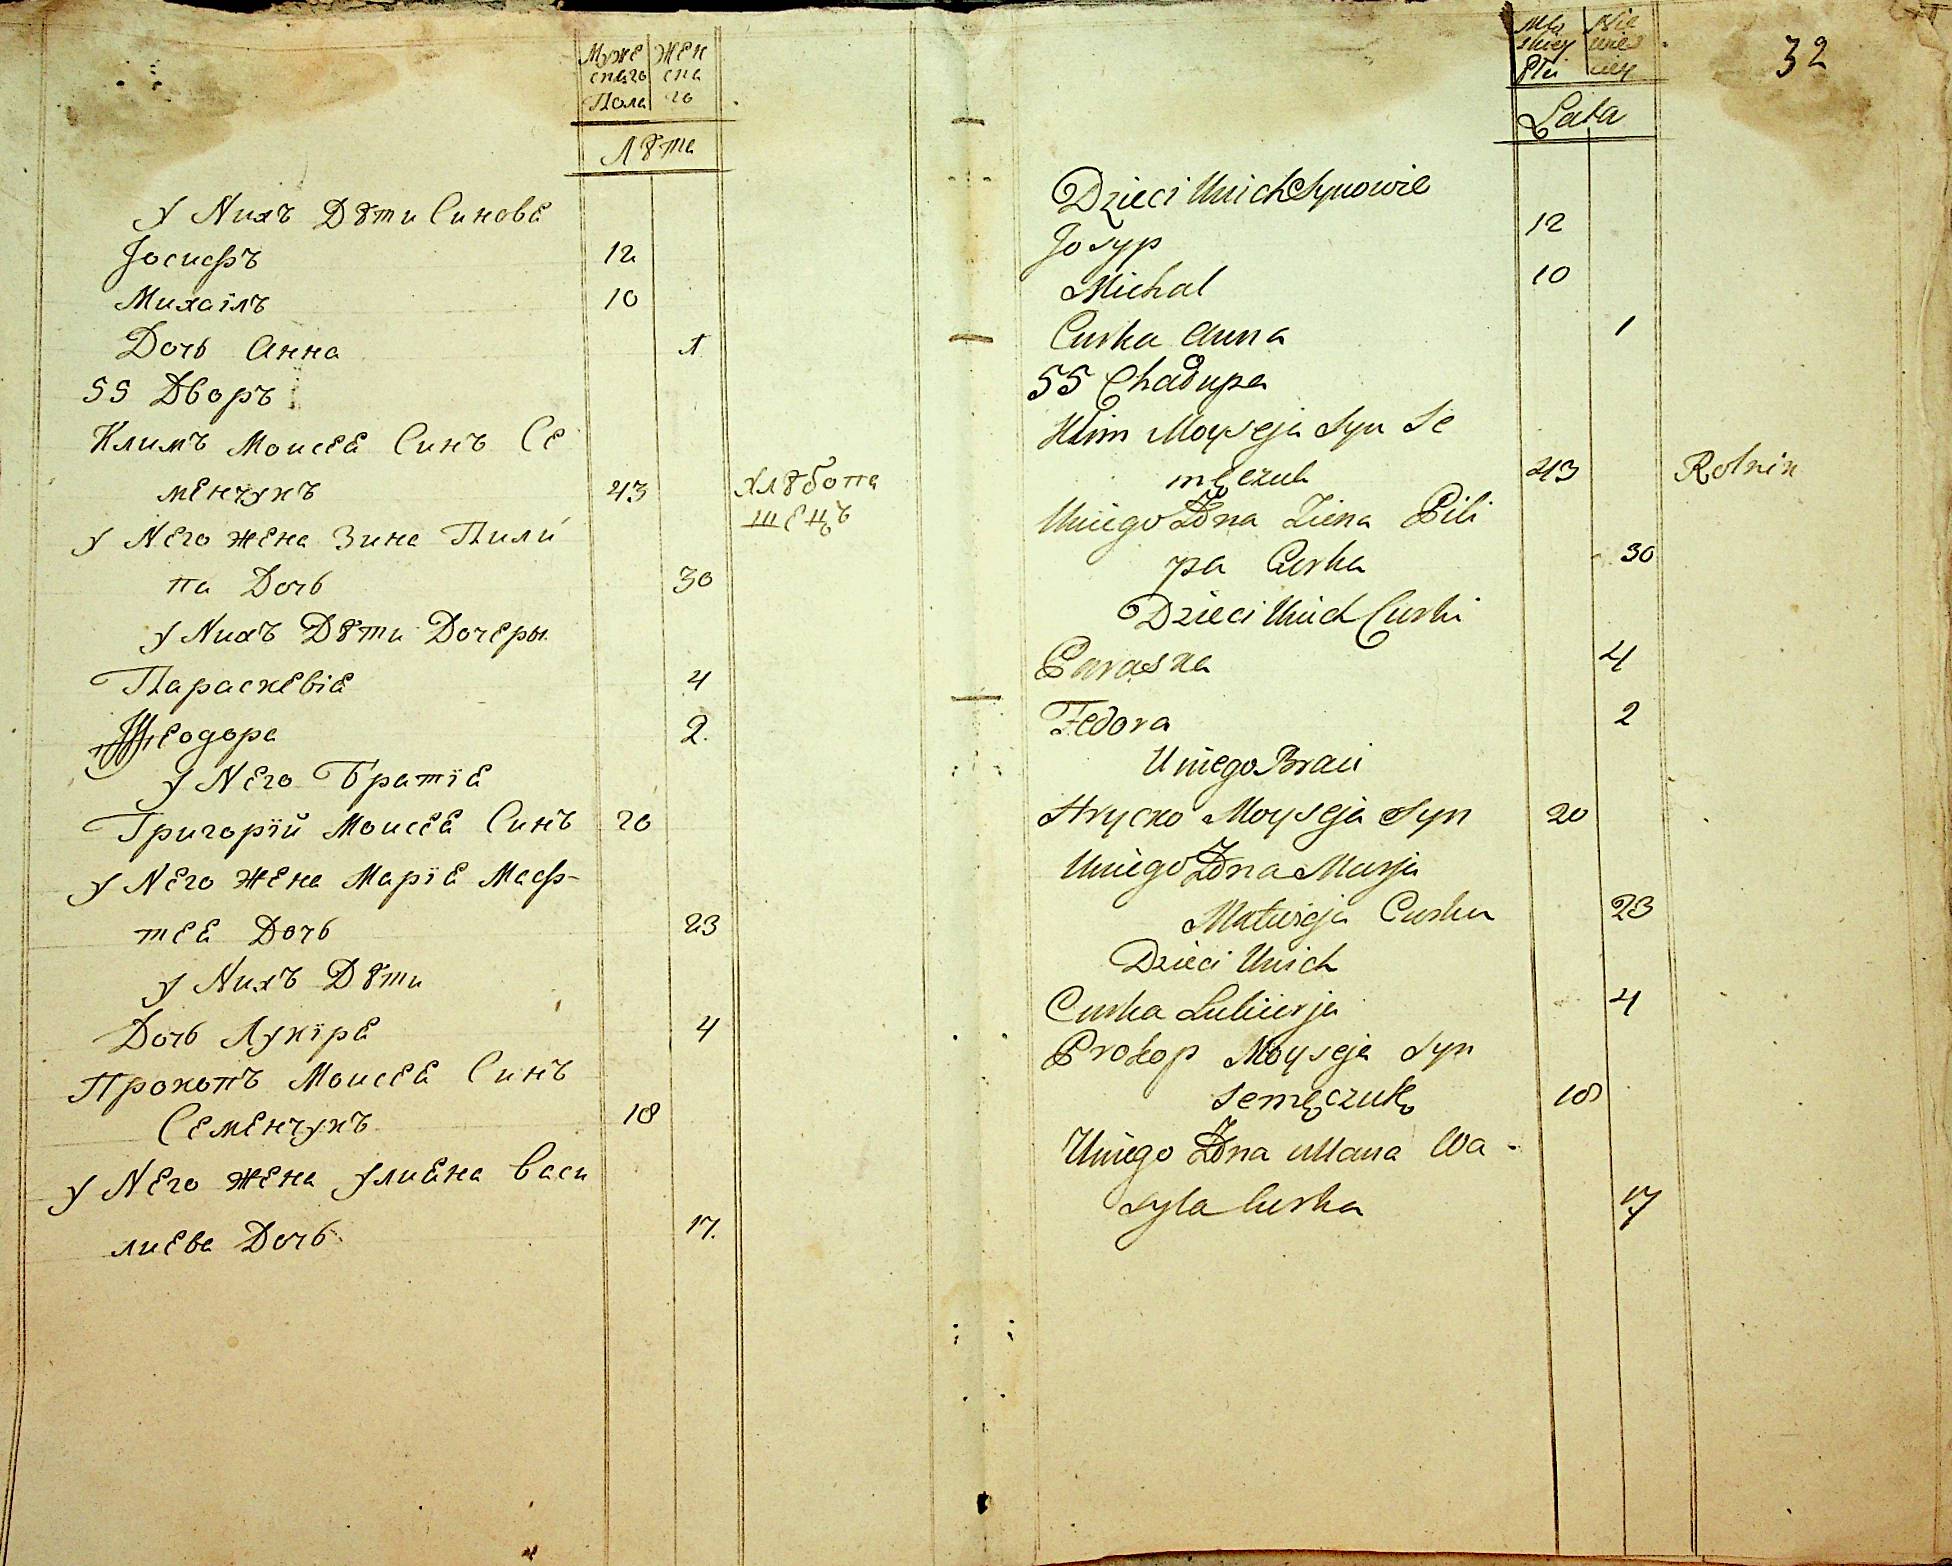 Муже Жен
скаго ска
Пола го
Лѣта
у Нихъ Дѣти Синове
Іосифъ 12
Михаілъ 10
Дочь Анна 1
55 Дворъ
Климъ Моисея Синъ Се
менчукъ 43 хлѣбопа
шецъ
у Него жена Зина Пили
па Дочь 30
у Нихъ Дѣти Дочеры
Параскевія 4
Теодора 2.
у Него Братія
Григорій Моисея Синъ 20
у Него жена Марія Маф-
тея Дочь 23
у Нихъ Дѣти
Дочь Лукіря 4
Прокопъ Моисея Синъ
Семенчукъ 18
у Него жена Улияна Васи
лиева Дочь 17.
32
Mę Nie
skiey wies
Płci ciey
Lata
Dzieci Unich Synowie
Josyp 12
Michal 10
Curka Anna 1
55 Chałupa
Klim Moyseja Syn Se
męczuk 43 Rolnik
Uniego Żona Ziena Pili
pa Curka 30
Dzieci Unich Curki
Paraska 4
Fedora 2
Uniego Braci
Hrycko Moyseja Syn 20
Uniego Żona Marja
Matwieja Curka 23
Dzieci Unich
Curka Lukierja 4
Prokop Moyseja Syn
Semęczuk 18
Uniego Żona Ullana Wa-
syla Curka 17